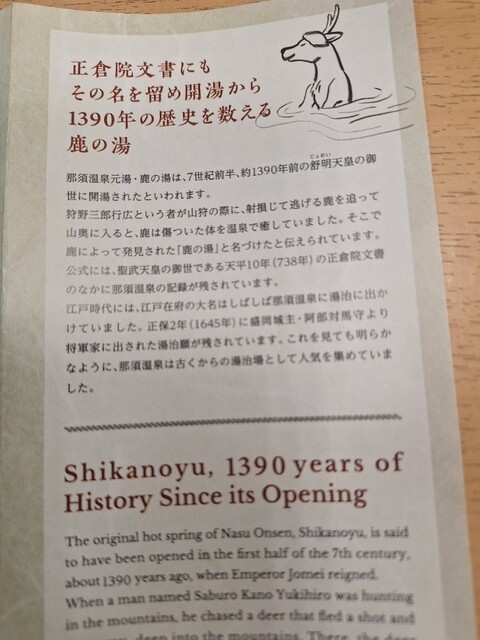 正倉院文書にも
その名を留め開湯から
1390年の歴史を数える
鹿の湯
那須温泉元湯・鹿の湯は、7世紀前半、約1390年前の舒明天皇の御
じょめい
世に開湯されたといわれます。
狩野三郎行広という者が山狩の際に、射損じて逃げる鹿を追って
山奥に入ると、鹿は傷ついた体を温泉で癒していました。そこで
鹿によって発見された「鹿の湯」と名づけたと伝えられています。
公式には、聖武天皇の御世である天平10年（738年）の正倉院文書
のなかに那須温泉の記録が残されています。
江戸時代には、江戸在府の大名はしばしば那須温泉に湯治に出か
けていました。正保2年（1645年）に盛岡城主・阿部対馬守より
将軍家に出された湯治願が残されています。これを見ても明らか
なように、那須温泉は古くからの湯治場として人気を集めていま
した。
Shikanoyu, 1390 years of
History Since its Opening
The original hot spring of Nasu Onsen, Shikanoyu, is said
to have been opened in the first half of the 7th century,
about 1390 years ago, when Emperor Jomei reigned.
When a man named Saburo Kano Yukihiro was hunting
in the mountains, he chased a deer that fled a shot and
deep into the mountains. There, the deer